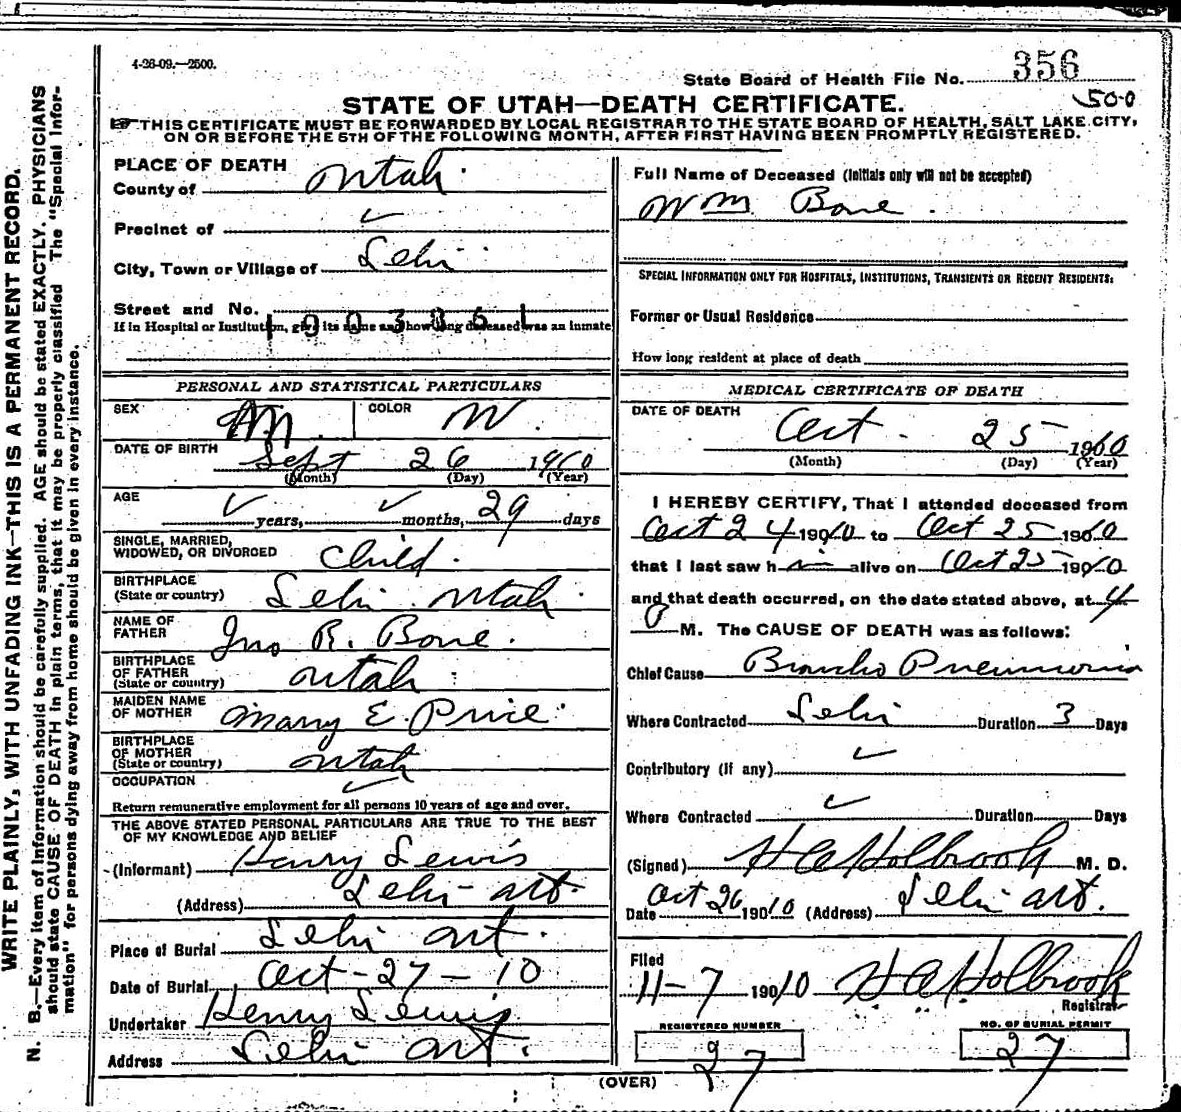 4-26-09.—2500.
State Board of Health File No. 356
500
STATE OF UTAH—DEATH CERTIFICATE.
☞THIS CERTIFICATE MUST BE FORWARDED BY LOCAL REGISTRAR TO THE STATE BOARD OF HEALTH, SALT LAKE CITY,
ON OR BEFORE THE 5TH OF THE FOLLOWING MONTH, AFTER FIRST HAVING BEEN PROMPTLY REGISTERED.
PLACE OF DEATH
County of Utah
Precinct of ✓
City, Town or Village of Lehi
Street and No.
1003861
If in Hospital or Institution, give its name and how long deceased was an inmate
PERSONAL AND STATISTICAL PARTICULARS
SEX M. COLOR W.
DATE OF BIRTH Sept 26 1910
(Month) (Day) (Year)
AGE ✓ years, ✓ months, 29 days
SINGLE, MARRIED,
WIDOWED, OR DIVORCED Child.
BIRTHPLACE
(State or country) Lehi Utah
NAME OF
FATHER Jno R. Bone.
BIRTHPLACE
OF FATHER
(State or country) Utah
MAIDEN NAME
OF MOTHER Mary E. Price
BIRTHPLACE
OF MOTHER
(State or country) Utah
OCCUPATION ✓
Return remunerative employment for all persons 10 years of age and over.
THE ABOVE STATED PERSONAL PARTICULARS ARE TRUE TO THE BEST
OF MY KNOWLEDGE AND BELIEF
(Informant) Henry Lewis
(Address) Lehi Ut.
Place of Burial Lehi Ut.
Date of Burial Oct - 27 - 10
Undertaker Henry Lewis
Address Lehi Ut.
Full Name of Deceased (Initials only will not be accepted)
Wm Bone.
SPECIAL INFORMATION ONLY FOR HOSPITALS, INSTITUTIONS, TRANSIENTS OR RECENT RESIDENTS:
Former or Usual Residence
How long resident at place of death
MEDICAL CERTIFICATE OF DEATH
DATE OF DEATH
Oct. 25 1910
(Month) (Day) (Year)
I HEREBY CERTIFY, That I attended deceased from
Oct 24 1910 to Oct 25 1910
that I last saw h im alive on Oct 25 1910
and that death occurred, on the date stated above, at 4
P M. The CAUSE OF DEATH was as follows:
Chief Cause Broncho Pneumonia
Where Contracted Lehi Duration 3 Days
Contributory (if any) ✓
Where Contracted ✓ Duration Days
(Signed) H A Holbrook M. D.
Date Oct 26 1910 (Address) Lehi Ut.
Filed
11-7 1910 H A Holbrook
Registrar
REGISTERED NUMBER
27
NO. OF BURIAL PERMIT
27
(OVER)
WRITE PLAINLY, WITH UNFADING INK—THIS IS A PERMANENT RECORD.
N. B.—Every item of Information should be carefully supplied. AGE should be stated EXACTLY. PHYSICIANS
should state CAUSE OF DEATH in plain terms, that it may be properly classified. The "Special Infor-
mation" for persons dying away from home should be given in every instance.